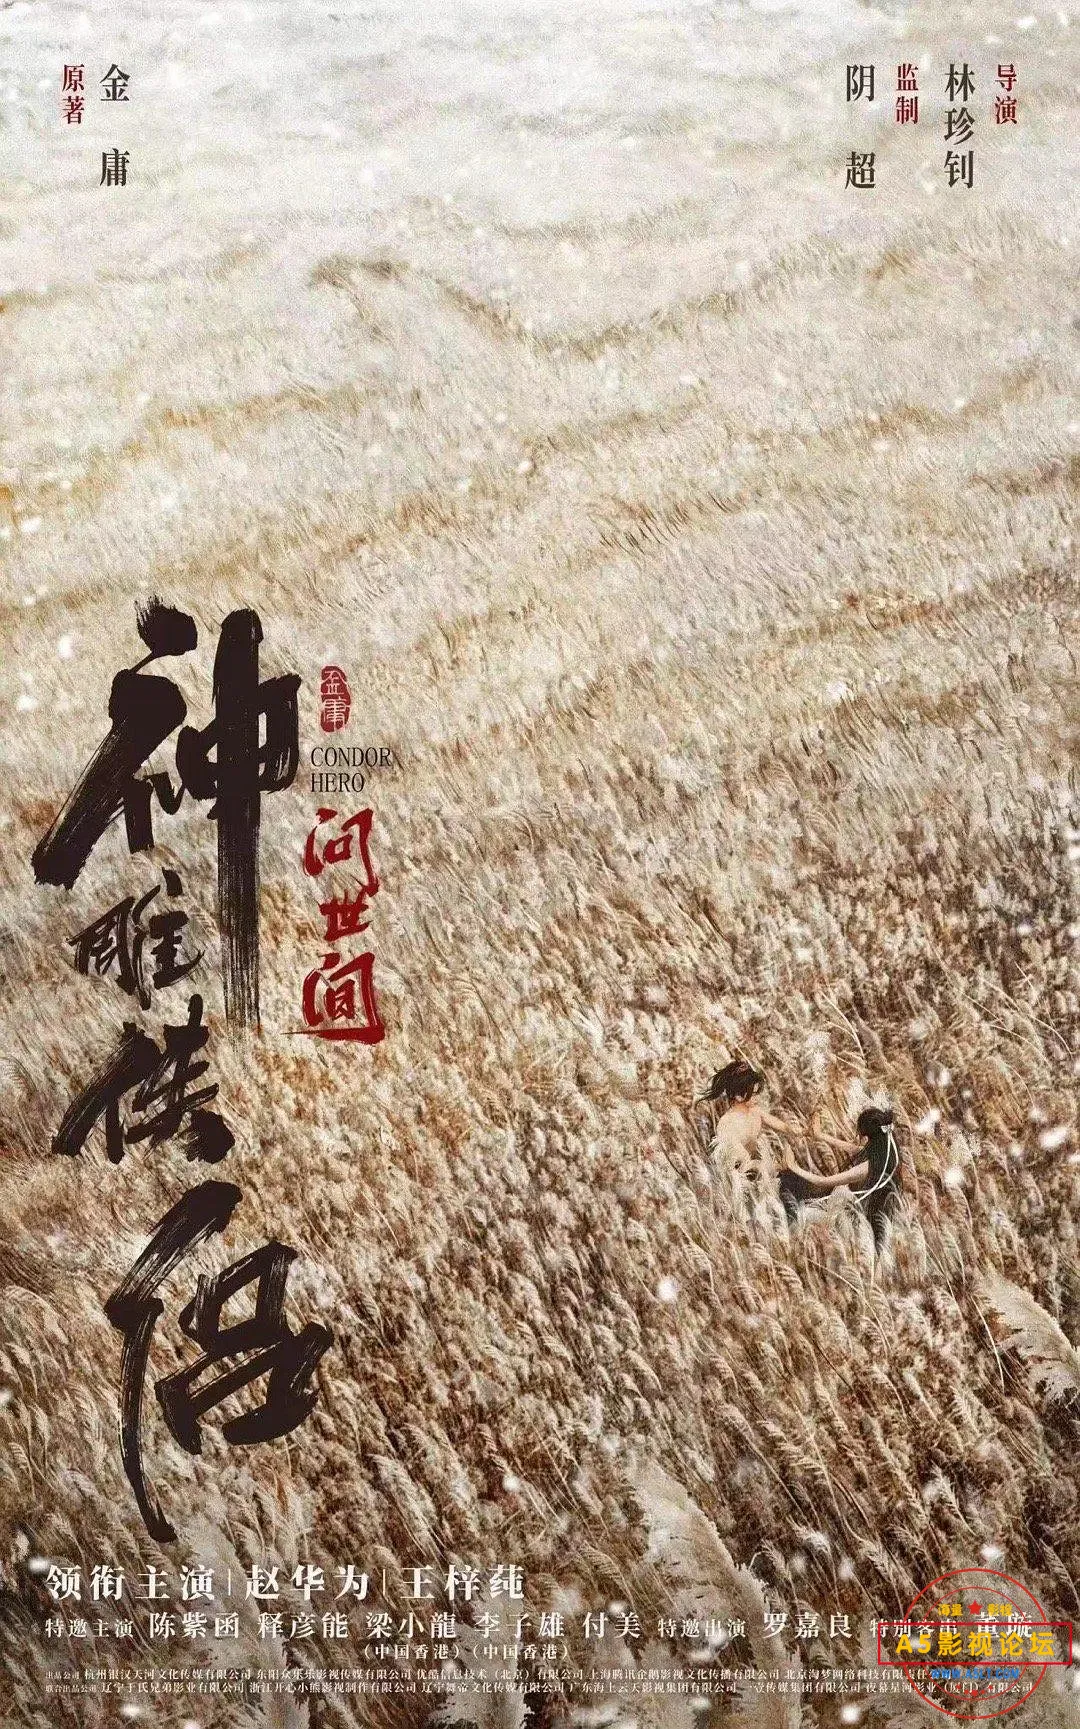 导演
林珍钊
监制
阴超
原著
金庸
神雕侠侣
金庸
CONDOR
HERO
问世间
领衔主演|赵华为|王梓莼
特邀主演 陈紫函 释彦能 梁小龍 李子雄 付美 特邀出演 罗嘉良 特别客串 董璇
(中国香港)(中国香港)
出品公司 杭州银汉天河文化传媒有限公司 东阳众乐乐影视传媒有限公司 优酷信息技术(北京)有限公司 上海腾讯企鹅影视文化传播有限公司 北京淘梦网络科技有限责任
联合出品公司 辽宁于氏兄弟影业有限公司 浙江开心小熊影视制作有限公司 辽宁舞帝文化传媒有限公司 广东海上云天影视集团有限公司 一壹传媒集团有限公司 夜幕星河影业(厦门)有限公司
海量★影视
A5影视论坛